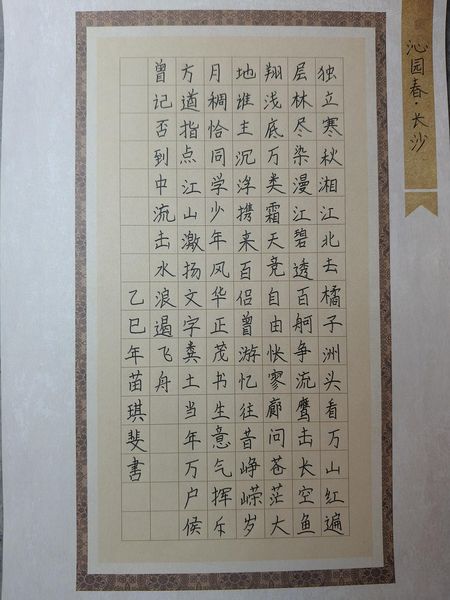 沁园春·长沙
独立寒秋湘江北去橘子洲头看万山红遍
层林尽染漫江碧透百舸争流鹰击长空鱼
翔浅底万类霜天竞自由怅寥廓问苍茫大
地谁主沉浮携来百侣曾游忆往昔峥嵘岁
月稠恰同学少年风华正茂书生意气挥斥
方遒指点江山激扬文字粪土当年万户侯
曾记否到中流击水浪遏飞舟
乙巳年苗琪斐书